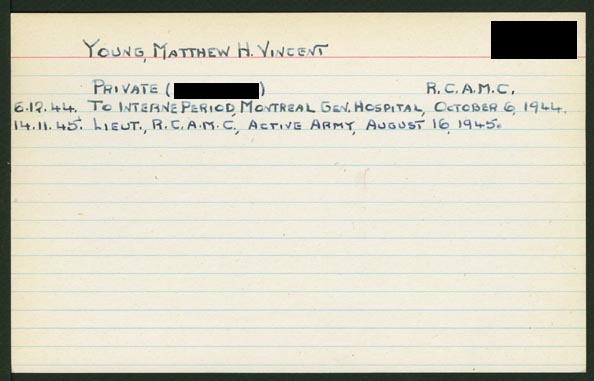 YOUNG, MATTHEW H. VINCENT
PRIVATE ( ) R.C.A.M.C.
6.12.44. TO INTERNE PERIOD, MONTREAL GEN. HOSPITAL, OCTOBER 6, 1944.
14.11.45. LIEUT., R.C.A.M.C., ACTIVE ARMY, AUGUST 16, 1945.